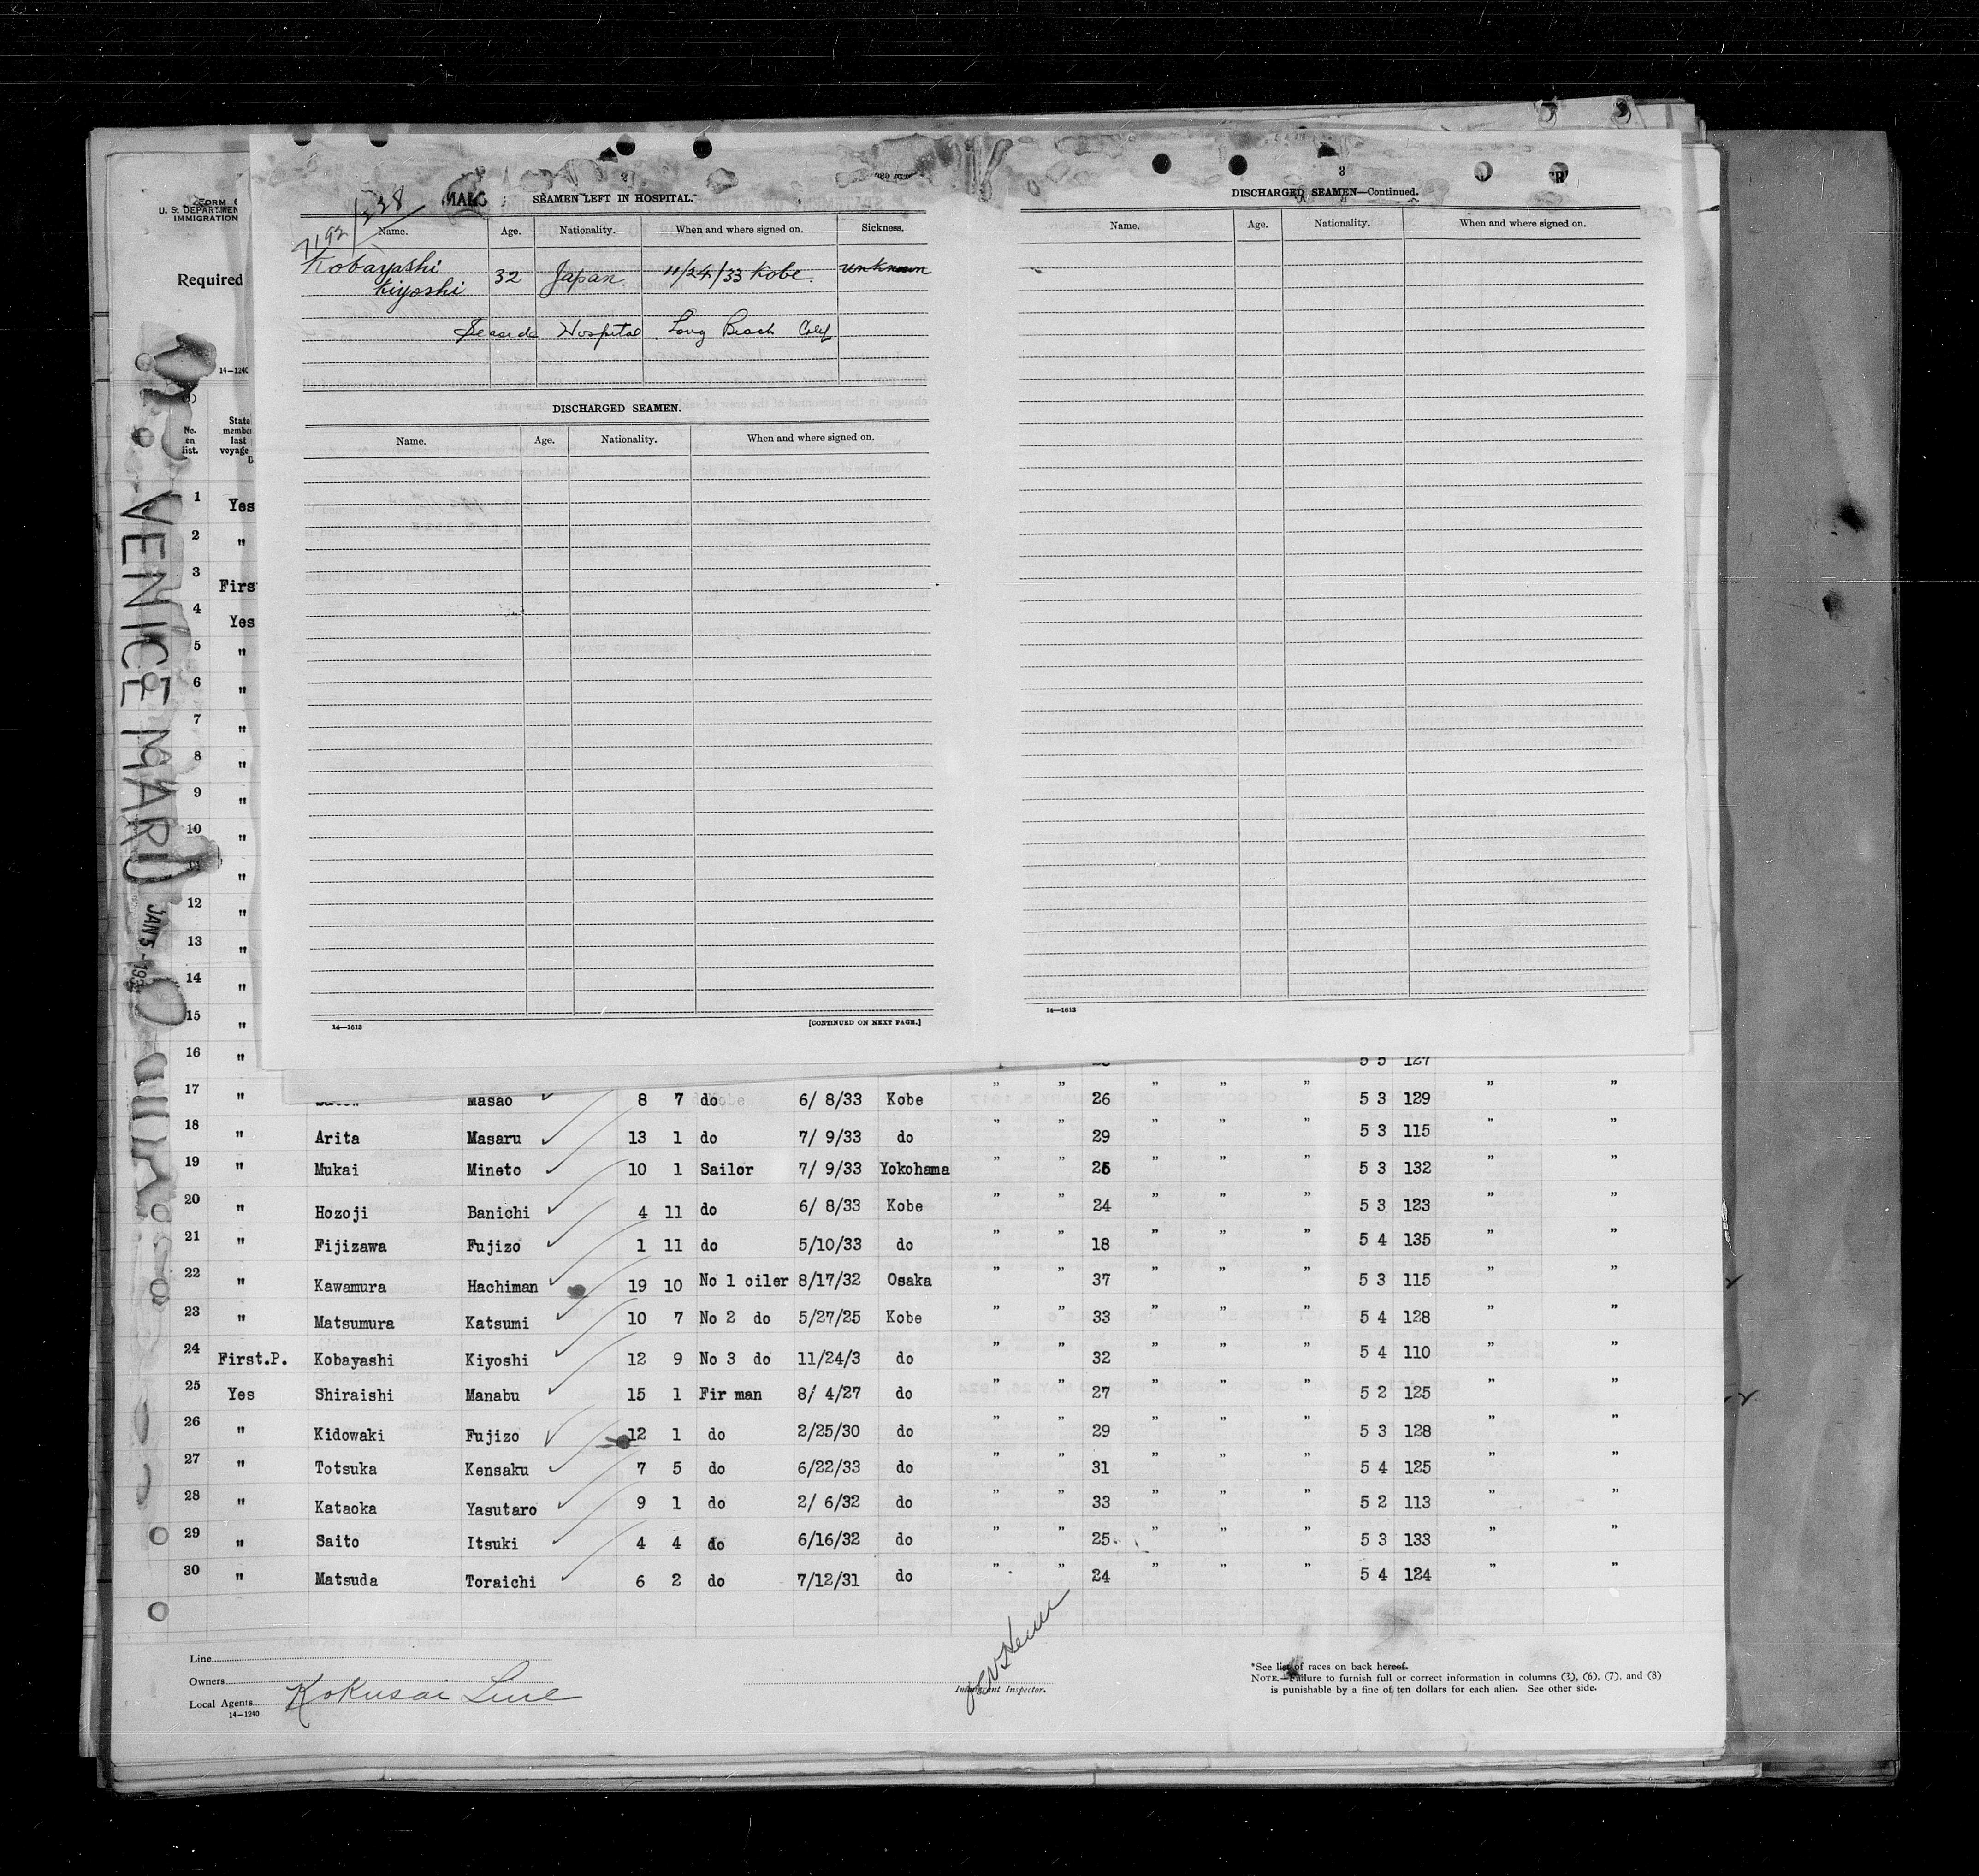 FORM
U. S. DEPARTMEN
IMMIGRATION
Required
14-1240
No.
en
list.
State
membe
last
voyage
VENICE MARU
JAN 5 - 193
7192/338
SEAMEN LEFT IN HOSPITAL.
Name. Age. Nationality. When and where signed on. Sickness.
Kobayashi
Kiyoshi 32 Japan. 11/24/33 Kobe. unknown
Seaside Hospital Long Beach Calif
DISCHARGED SEAMEN.
Name. Age. Nationality. When and where signed on.
14—1613 [CONTINUED ON NEXT PAGE.]
3
DISCHARGED SEAMEN—Continued.
Name. Age. Nationality. When and where signed on.
14—1613
1 Yes
2 "
3 Firs
4 Yes
5 "
6 "
7 "
8 "
9 "
10 "
11 "
12 "
13 "
14 "
15 "
16 " 5 5 127
17 " Masao 8 7 do 6/ 8/33 Kobe " " 26 " " " 5 3 129 " "
18 " Arita Masaru 13 1 do 7/ 9/33 do " " 29 " " " 5 3 115 " "
19 " Mukai Mineto 10 1 Sailor 7/ 9/33 Yokohama " " 26 " " " 5 3 132 " "
20 " Hozoji Banichi 4 11 do 6/ 8/33 Kobe " " 24 " " " 5 3 123 " "
21 " Fijizawa Fujizo 1 11 do 5/10/33 do " " 18 " " " 5 4 135 " "
22 " Kawamura Hachiman 19 10 No 1 oiler 8/17/32 Osaka " " 37 " " " 5 3 115 " "
23 " Matsumura Katsumi 10 7 No 2 do 5/27/25 Kobe " " 33 " " " 5 4 128 " "
24 First.P. Kobayashi Kiyoshi 12 9 No 3 do 11/24/3 do " " 32 " " " 5 4 110 " "
25 Yes Shiraishi Manabu 15 1 Fir man 8/ 4/27 do " " 27 " " " 5 2 125 " "
26 " Kidowaki Fujizo 12 1 do 2/25/30 do " " 29 " " " 5 3 128 " "
27 " Totsuka Kensaku 7 5 do 6/22/33 do " " 31 " " " 5 4 125 " "
28 " Kataoka Yasutaro 9 1 do 2/ 6/32 do " " 33 " " " 5 2 113 " "
29 " Saito Itsuki 4 4 do 6/16/32 do " " 25 " " " 5 3 133 " "
30 " Matsuda Toraichi 6 2 do 7/12/31 do " " 24 " " " 5 4 124 " "
Line
Owners
Local Agents Kokusai Line
14-1240
Immigrant Inspector.
*See list of races on back hereof.
NOTE.—Failure to furnish full or correct information in columns (3), (6), (7), and (8)
is punishable by a fine of ten dollars for each alien. See other side.